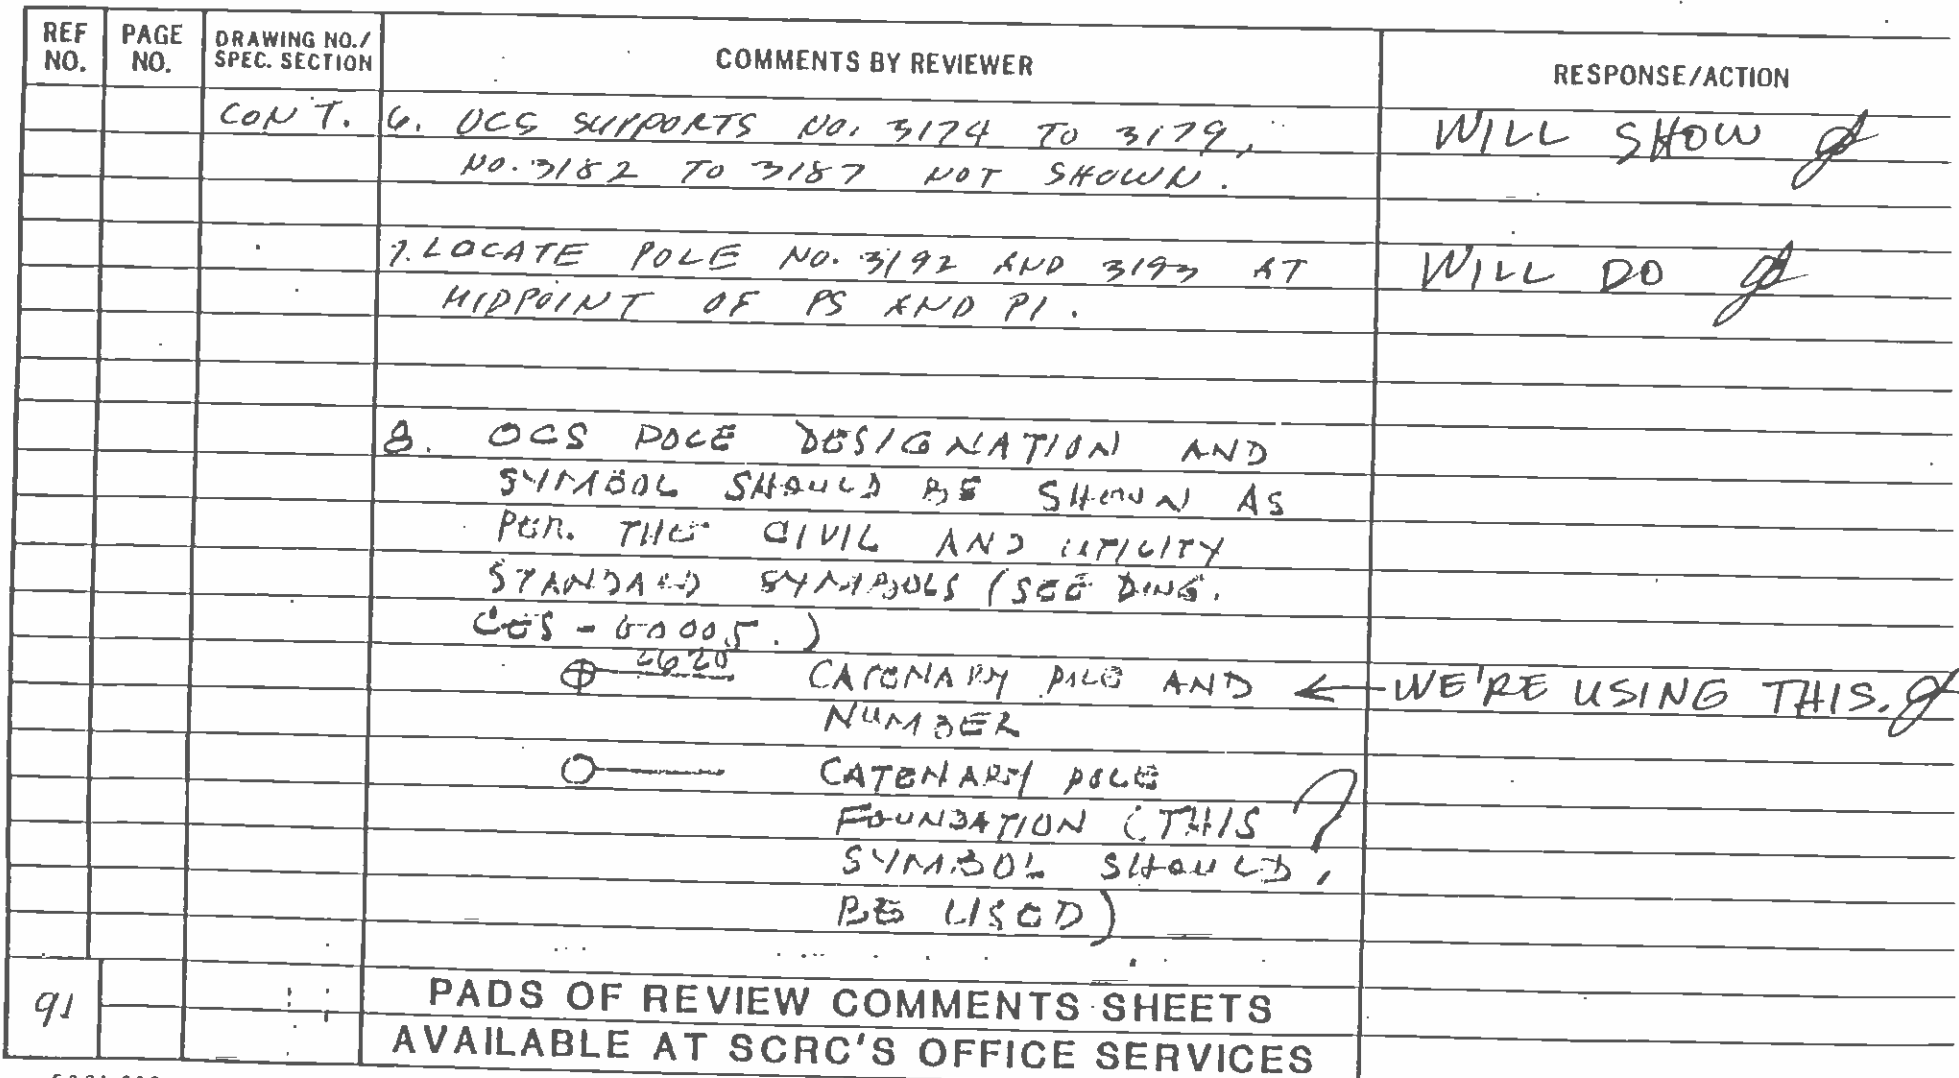 REF NO.
PAGE NO.
DRAWING NO./ SPEC. SECTION
COMMENTS BY REVIEWER
RESPONSE/ACTION
CON'T. 6. OCS SUPPORTS NO. 3174 TO 3179, WILL SHOW
NO. 3182 TO 3187 NOT SHOWN.
7. LOCATE POLE NO. 3192 AND 3193 AT WILL DO
MIDPOINT OF PS AND PI.
8. OCS POLE DESIGNATION AND
SYMBOL SHOULD BE SHOWN AS
PER. THE CIVIL AND UTILITY
STANDARD SYMBOLS (SEE DWG.
)
CATENARY POLE AND ← WE'RE USING THIS.
NUMBER
CATENARY POLE
FOUNDATION (THIS ?
SYMBOL SHOULD
BE USED)
91
PADS OF REVIEW COMMENTS SHEETS
AVAILABLE AT SCRC'S OFFICE SERVICES